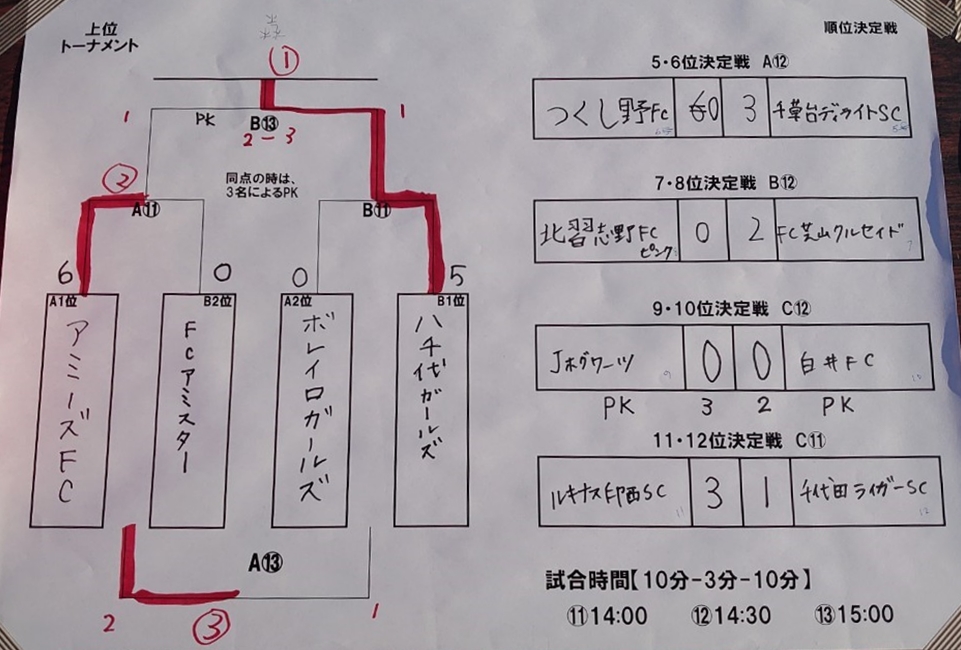 上位
トーナメント
①
1
1
PK
B⑬
2 - 3
同点の時は、
3名によるPK
②
A⑪
B⑪
6
0
0
5
A1位
B2位
A2位
B1位
アミーズFC
FCアミスター
ボレイロガールズ
八千代ガールズ
A⑬
2
③
1
順位決定戦
5・6位決定戦 A⑫
つくし野FC 0 3 千草台ディライトSC
7・8位決定戦 B⑫
北習志野FC 0 2 FC芝山クルセイド
ピンク
7
9・10位決定戦 C⑫
Jホグワーツ 0 0 白井FC
9
10
PK 3 2 PK
11・12位決定戦 C⑪
ルキナス印西SC 3 1 千代田ライガーSC
11
12
試合時間【10分-3分-10分】
⑪14:00 ⑫14:30 ⑬15:00